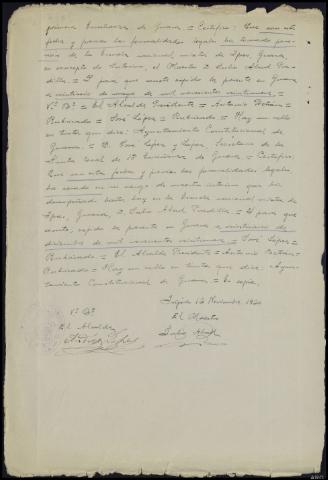 primera Enseñanza de Guarea = Certifico: Que con esta
fecha y previas las formalidades legales ha tomado pose-
sión de la Escuela nacional, mixta de Ipas, Guarea,
en concepto de Interino, el Maestro D. Julio Abad
= Y para que conste expido la presente en Guarea
a veintiuno de mayo de mil novecientos veintinueve =
Vº Bº = El Alcalde Presidente = Antonio
Rubricado = José López = Rubricado = Hay un sello
en tinta que dice: Ayuntamiento Constitucional de
Guarea = D. José López y López, Secretario de la
Junta local de 1ª Enseñanza de Guarea = Certifico:
Que con esta fecha y previas las formalidades legales
ha cesado en el cargo de maestro interino que ha
desempeñado hasta hoy en la Escuela nacional mixta de
Ipas, Guarea, D. Julio Abad = Y para que
conste, expido la presente en Guarea a veintiuno de
diciembre de mil novecientos veintinueve = José López =
Rubricado = El Alcalde Presidente = Antonio
Rubricado = Hay un sello en tinta que dice: Ayun-
tamiento Constitucional de Guarea = Es copia.
12 Noviembre 19
Vº Bº
El Alcalde
El Maestro
Julio Abad